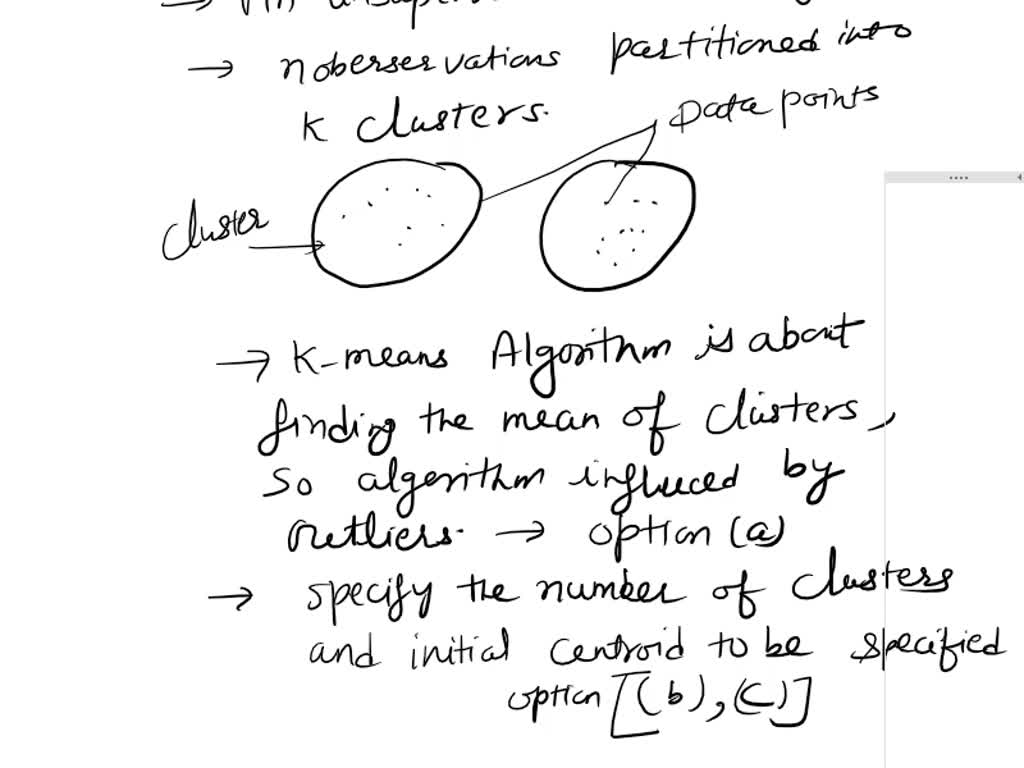 → n oberservations partitioned into
K clusters.
Data points
cluster
→ K-means Algorithm is about
finding the mean of clusters,
so algorithm influced by
outliers. → option (a)
→ specify the number of clusters
and initial centroid to be specified
option [(b), (c)]